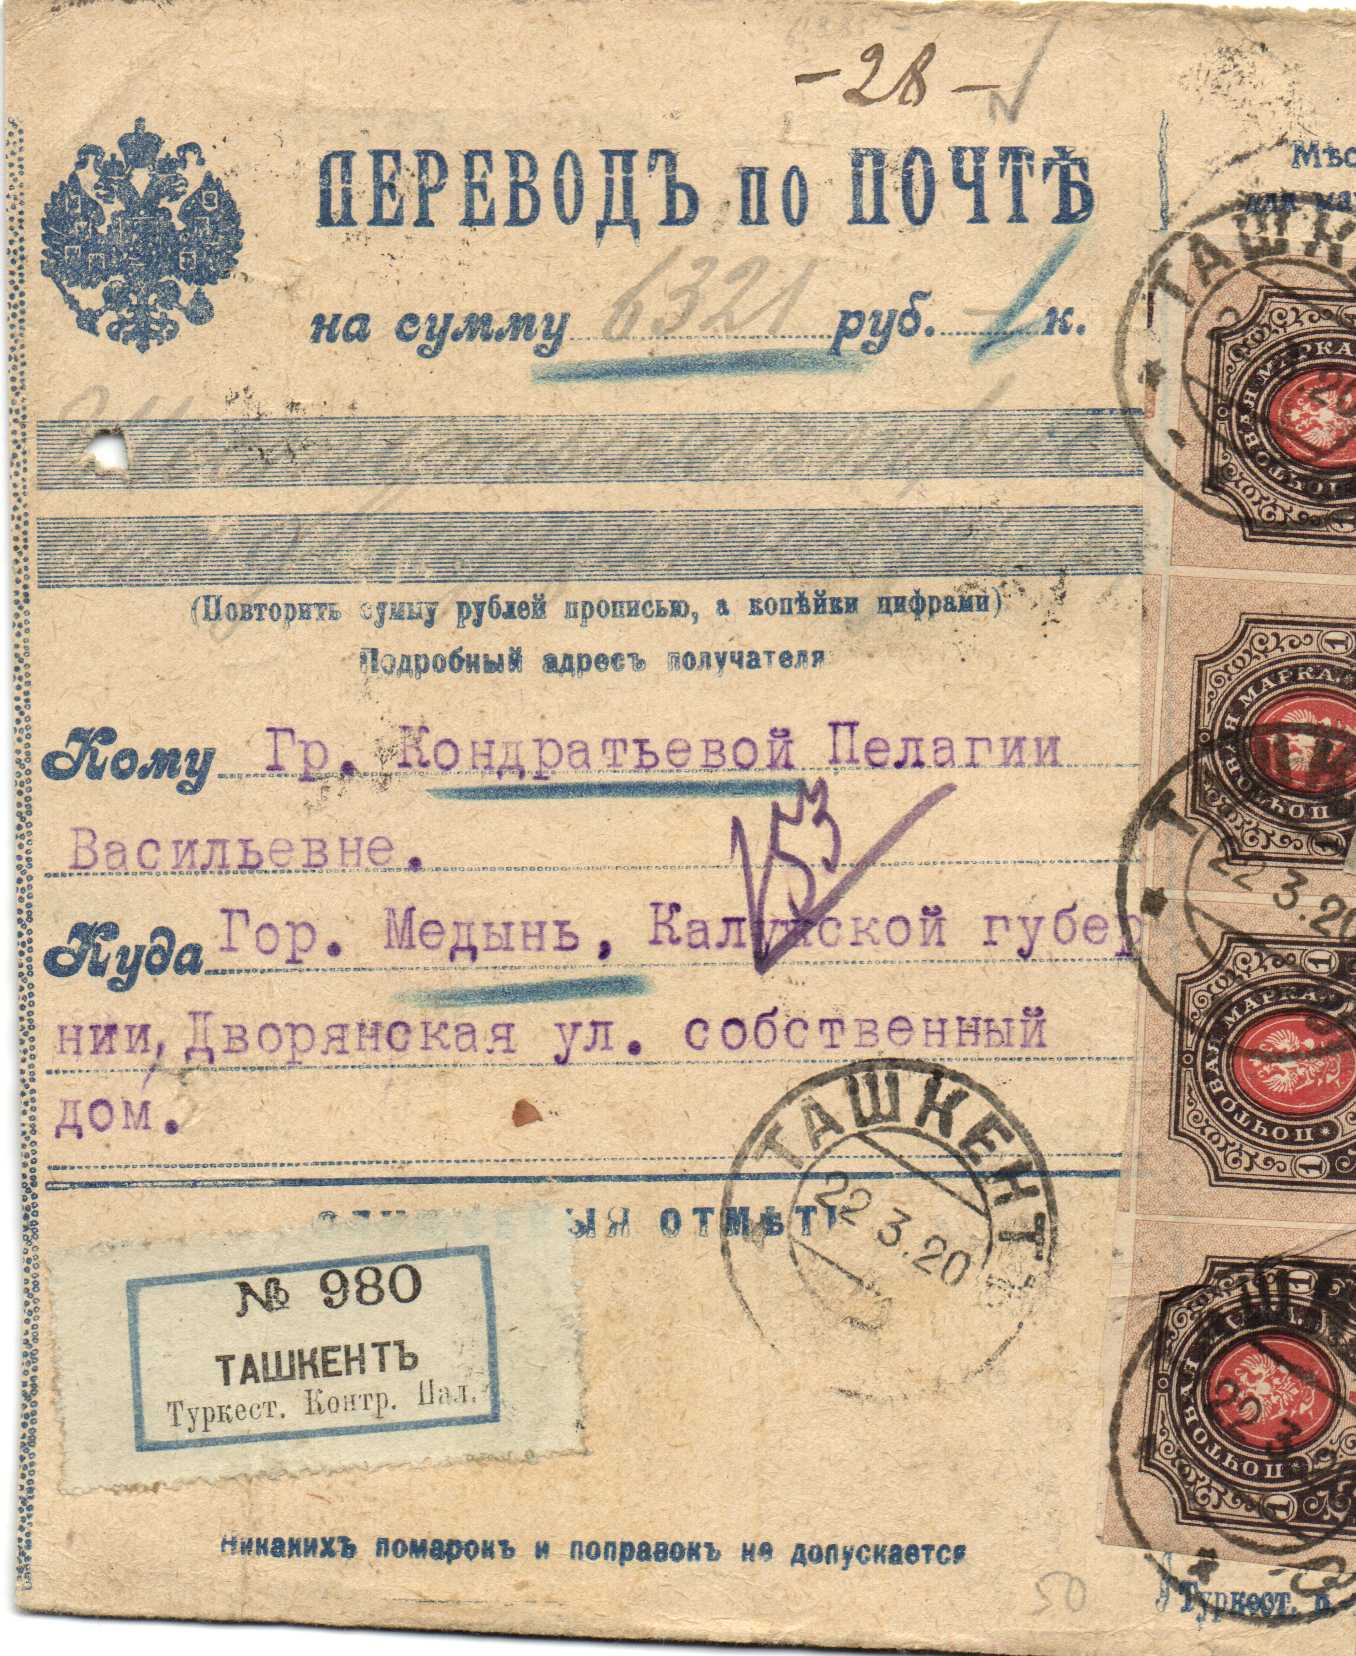 -28-
ПЕРЕВОДЪ по ПОЧТѢ
Мѣс
для ма
на сумму 6321 руб. - к.
(Повторить сумму рублей прописью, а копѣйки цифрами)
Подробный адресъ получателя
Кому Гр. Кондратьевой Пелагии
Васильевне.
53
Куда Гор. Медынь, Калужской губер
нии, Дворянская ул. собственный
дом.
СЛУЖЕБНЫЯ ОТМѢТ
№ 980
ТАШКЕНТЪ
Туркест. Контр. Пал.
ТАШКЕНТ
22 3.20
Никакихъ помарокъ и поправокъ не допускается
50
Туркест. к.
ТАШК
ПОЧТОВАЯ МАРКА
1
22 3.20
ПОЧТОВАЯ МАРКА
1
ПОЧТОВАЯ МАРКА
1
ПОЧТОВАЯ МАРКА
1
22 3.20